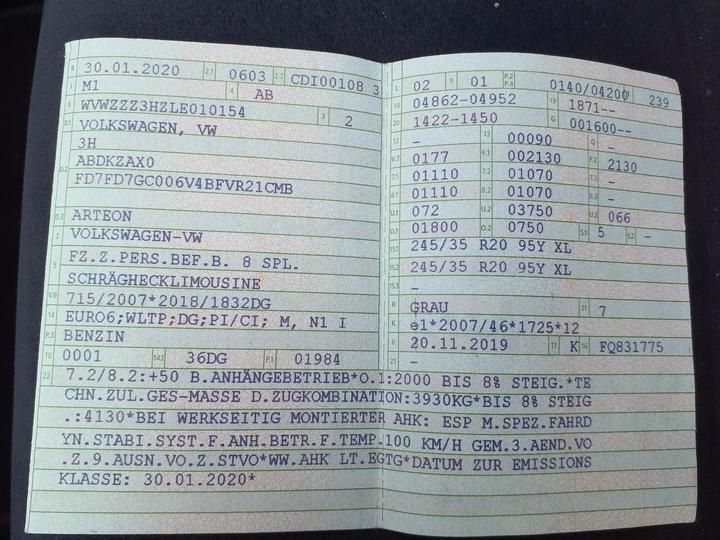 B 30.01.2020 2.1 0603 2.2 CDI00108 3
J M1 4 AB
E WVWZZZ3HZLE010154 3 2
D.1 VOLKSWAGEN, VW
3H
D.2 ABDKZAX0
FD7FD7GC006V4BFVR21CMB
D.3 ARTEON
2 VOLKSWAGEN-VW
5 FZ.Z.PERS.BEF.B. 8 SPL.
SCHRÄGHECKLIMOUSINE
V.9 715/2007*2018/1832DG
14 EURO6;WLTP;DG;PI/CI; M, N1 I
P.3 BENZIN
10 0001 14.1 36DG P.1 01984
L 02 9 01 P.2 P.4 0140/04200 T 239
18 04862-04952 19 1871--
20 1422-1450 G 001600--
12 - 13 00090 Q -
V.7 0177 F.1 002130 F.2 2130
7.1 01110 7.2 01070 7.3 -
8.1 01110 8.2 01070 8.3 -
U.1 072 U.2 03750 U.3 066
O.1 01800 O.2 0750 S.1 5 S.2 -
15.1 245/35 R20 95Y XL
15.2 245/35 R20 95Y XL
15.3 -
R GRAU 11 7
K e1*2007/46*1725*12
6 20.11.2019 17 K 16 FQ831775
21 -
22 7.2/8.2:+50 B.ANHÄNGEBETRIEB*O.1:2000 BIS 8% STEIG.*TE
CHN.ZUL.GES-MASSE D.ZUGKOMBINATION:3930KG*BIS 8% STEIG
.:4130*BEI WERKSEITIG MONTIERTER AHK: ESP M.SPEZ.FAHRD
YN.STABI.SYST.F.ANH.BETR.F.TEMP.100 KM/H GEM.3.AEND.VO
.Z.9.AUSN.VO.Z.STVO*WW.AHK LT.EGTG*DATUM ZUR EMISSIONS
KLASSE: 30.01.2020*